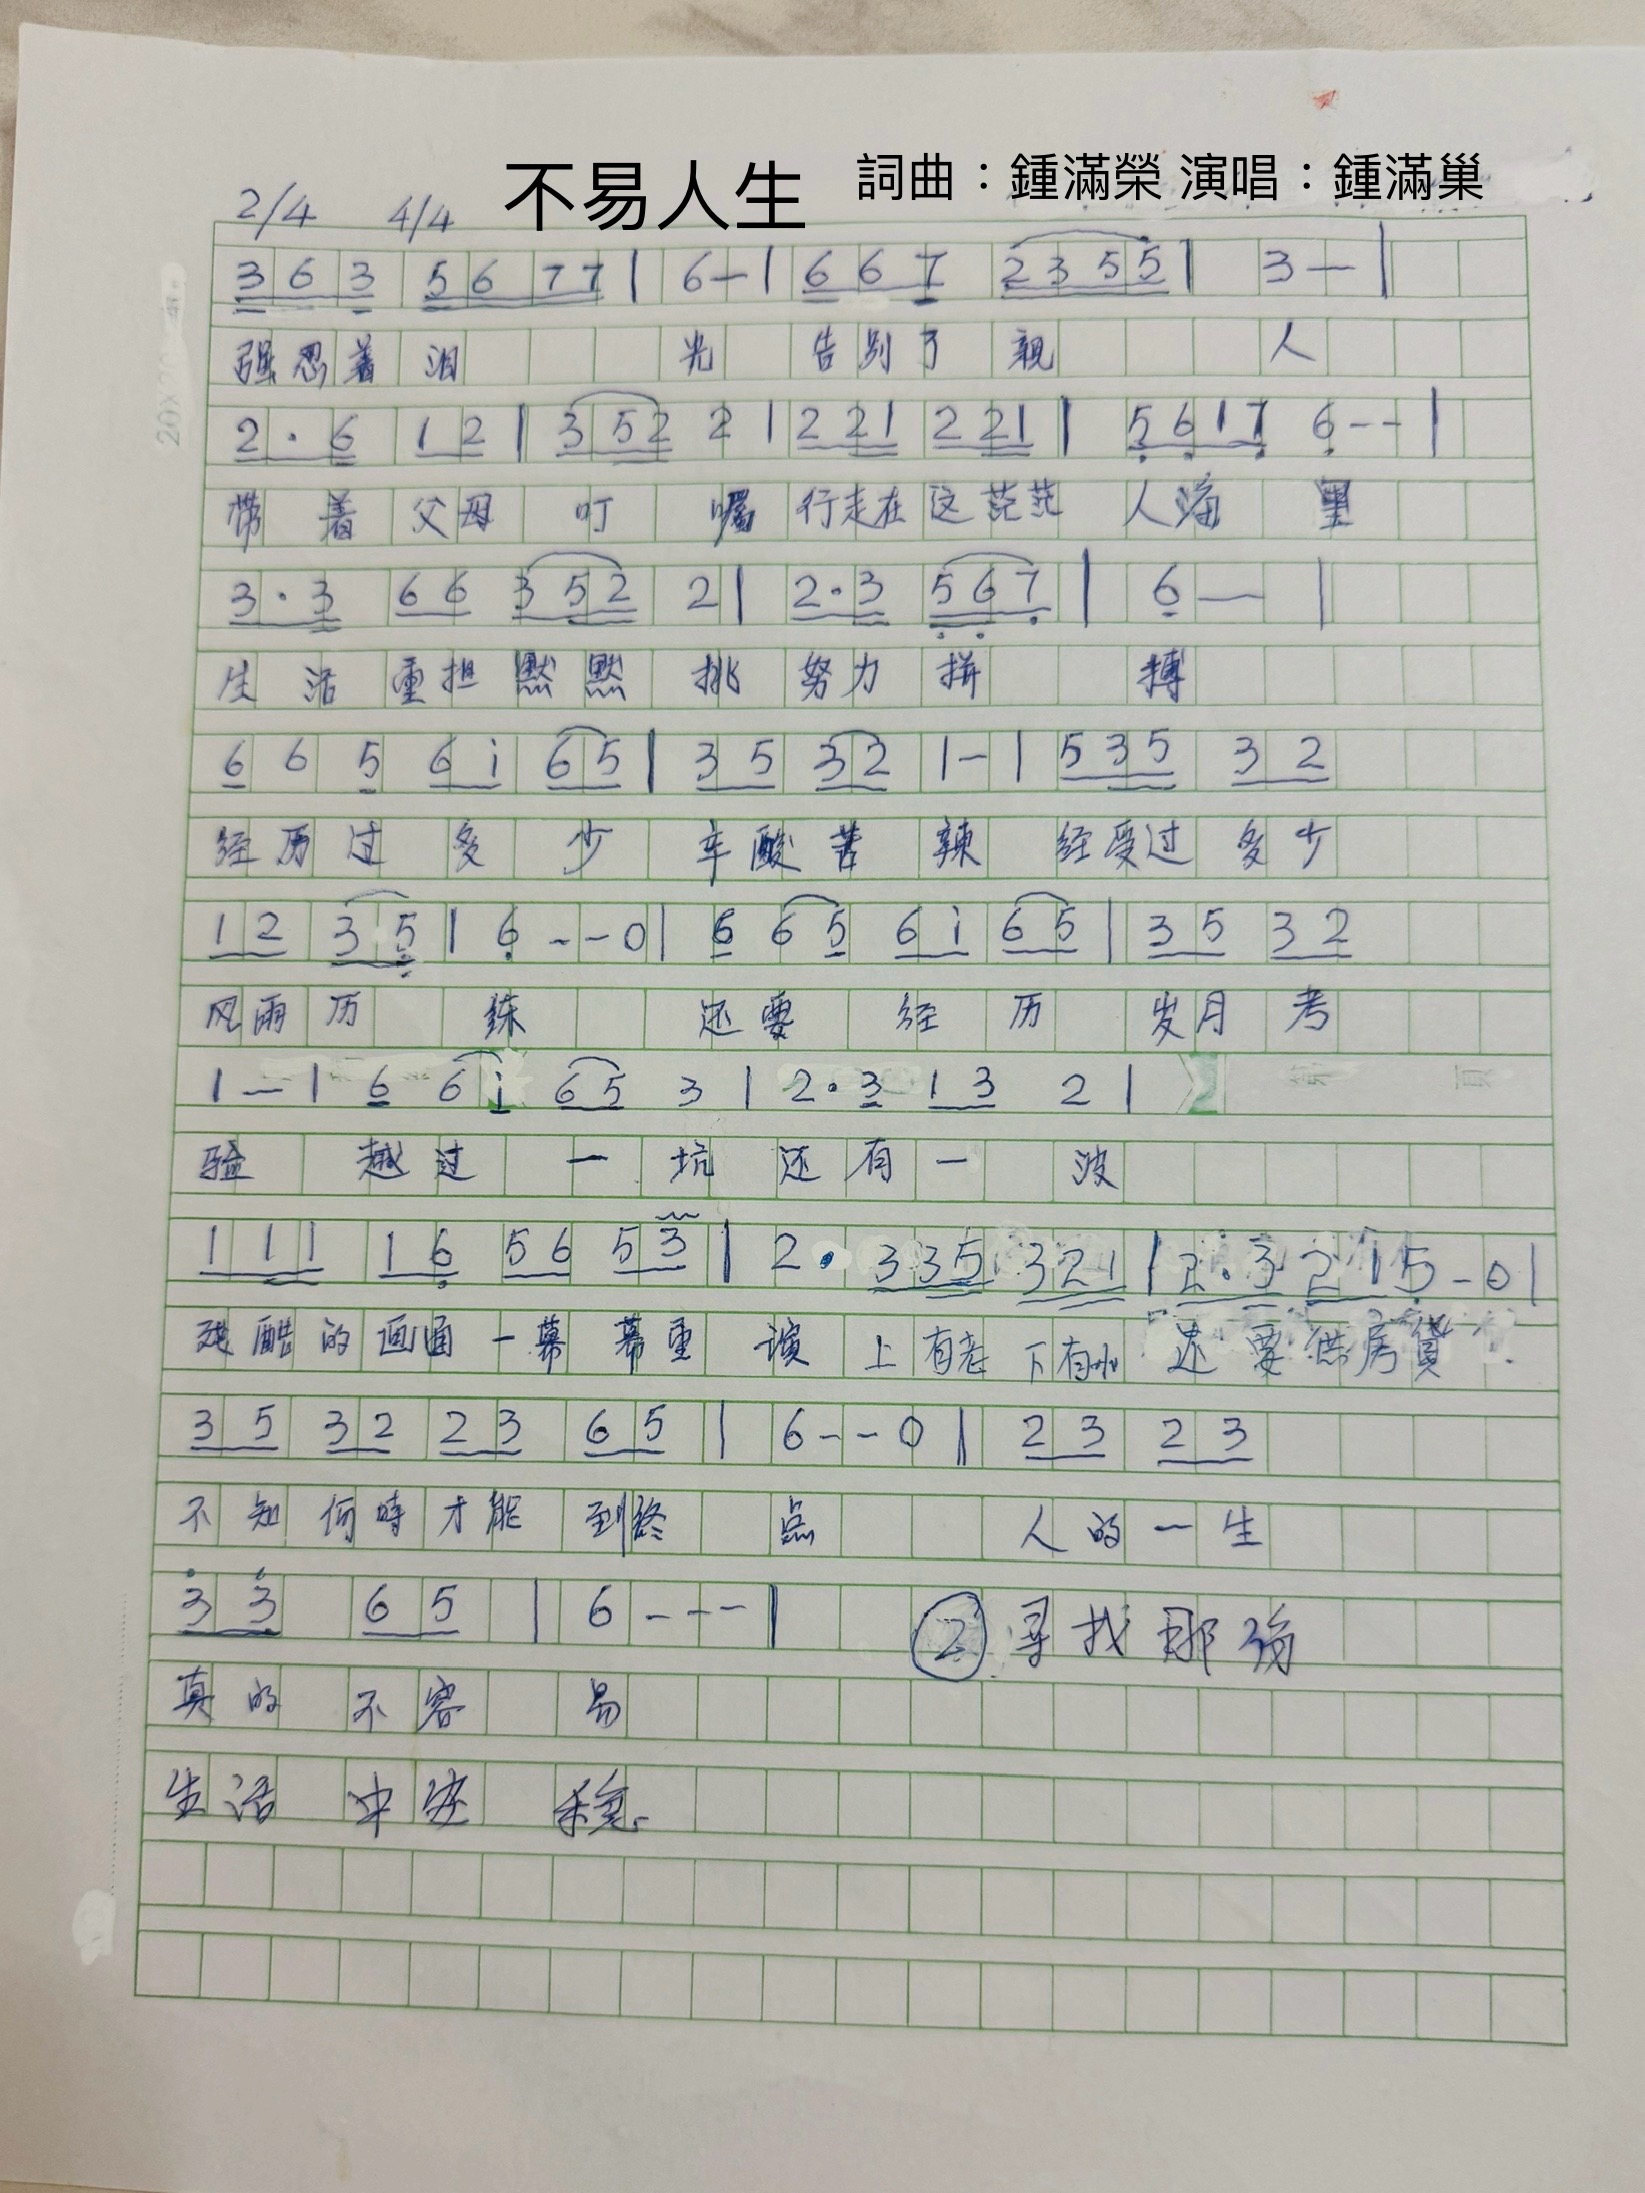 不易人生 詞曲：鍾滿榮 演唱：鍾滿巢
2/4 4/4
3 6 3 5 6 7 7 | 6 — | 6 6 7 2 3 5 5 | 3 — |
强忍着泪 光 告别了 親 人
2 · 6 1 2 | 3 5 2 2 | 2 2 1 2 2 1 | 5 6 1 7 6 - - |
带 着 父母 叮 嘱 行走在 这 茫茫 人海 里
3 · 3 6 6 3 5 2 2 | 2 · 3 5 6 7 | 6 — |
生 活 重担 默 默 挑 努力 拼 搏
6 6 5 6 i 6 5 | 3 5 3 2 1 - | 5 3 5 3 2
经历过 多 少 辛酸苦 辣 经受过 多少
1 2 3 5 | 6 - - 0 | 6 6 5 6 i 6 5 | 3 5 3 2
风雨历 练 还要 经 历 岁月 考
1 — | 6 6 i 6 5 3 | 2 · 3 1 3 2 |
验 越过 一 坑 还有一 波
1 1 1 1 6 5 6 5 3 | 2 · 3 3 5 3 2 1 | 2 · 3 2 1 5 - 0 |
残酷的画面一幕 幕重 演 上有老 下有小 还 要供房貸
3 5 3 2 2 3 6 5 | 6 - - 0 | 2 3 2 3
不知何時才能 到終 点 人的一生
3 3 6 5 | 6 - - - | ② 寻找那份
真的 不容 易
生活 中安 稳
20X20